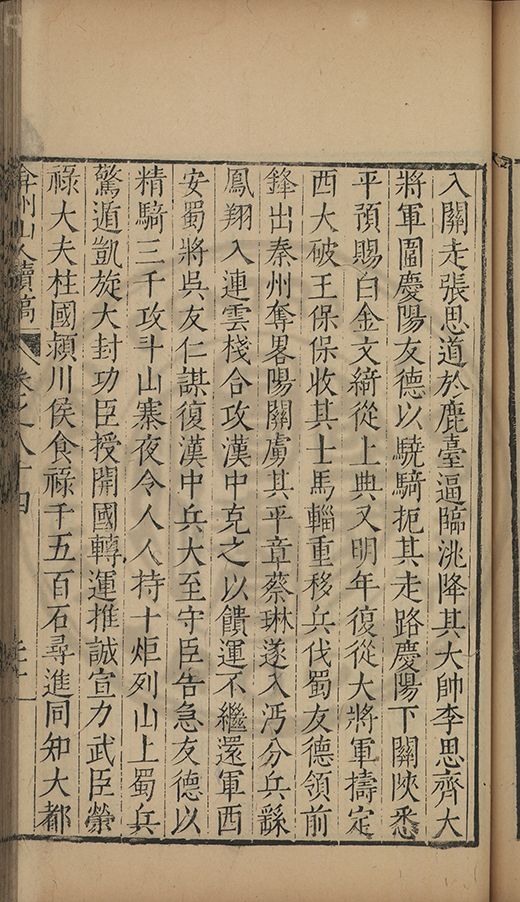 入關走張思道於鹿臺逼臨洮降其大帥李思齊大
將軍圍慶陽友德以驍騎扼其走路慶陽下關陝悉
平預賜白金文綺從上典又明年復從大將軍擣定
西大破王保保收其士馬輜重移兵伐蜀友德領前
鋒出秦州奪畧陽關虜其平章蔡琳遂入沔分兵繇
鳳翔入連雲棧合攻漢中克之以饋運不繼還軍西
安蜀將吳友仁謀復漢中兵大至守臣告急友德以
精騎三千攻斗山寨夜令人人持十炬列山上蜀兵
驚遁凱旋大封功臣授開國轉運推誠宣力武臣榮
祿大夫柱國潁川侯食祿千五百石尋進同知大都
弇州山人續稿 卷之八十四